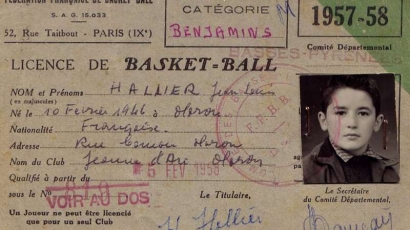 FÉDÉRATION FRANÇAISE DE BASKET BALL
S. A. G. 15.033
52, Rue Taitbout - PARIS (IXe)
CATÉGORIE
BENJAMINS
M
1957-58
BASSES-PYRÉNÉES
Comité Départemental
LICENCE DE BASKET-BALL
NOM et Prénoms HALLIER Jean Louis
(en majuscules)
Né le 10 Février 1946 à Oloron
Nationalité Française
Adresse Rue Oloron
Nom du Club Jeanne d'Arc Oloron
Qualifié à partir du 5 FEV 1958
sous le No 819
VOIR AU DOS
Le Titulaire,
Le Secrétaire
du Comité Départemental,
Un Joueur ne peut être licencié
que pour un seul Club
Hallier